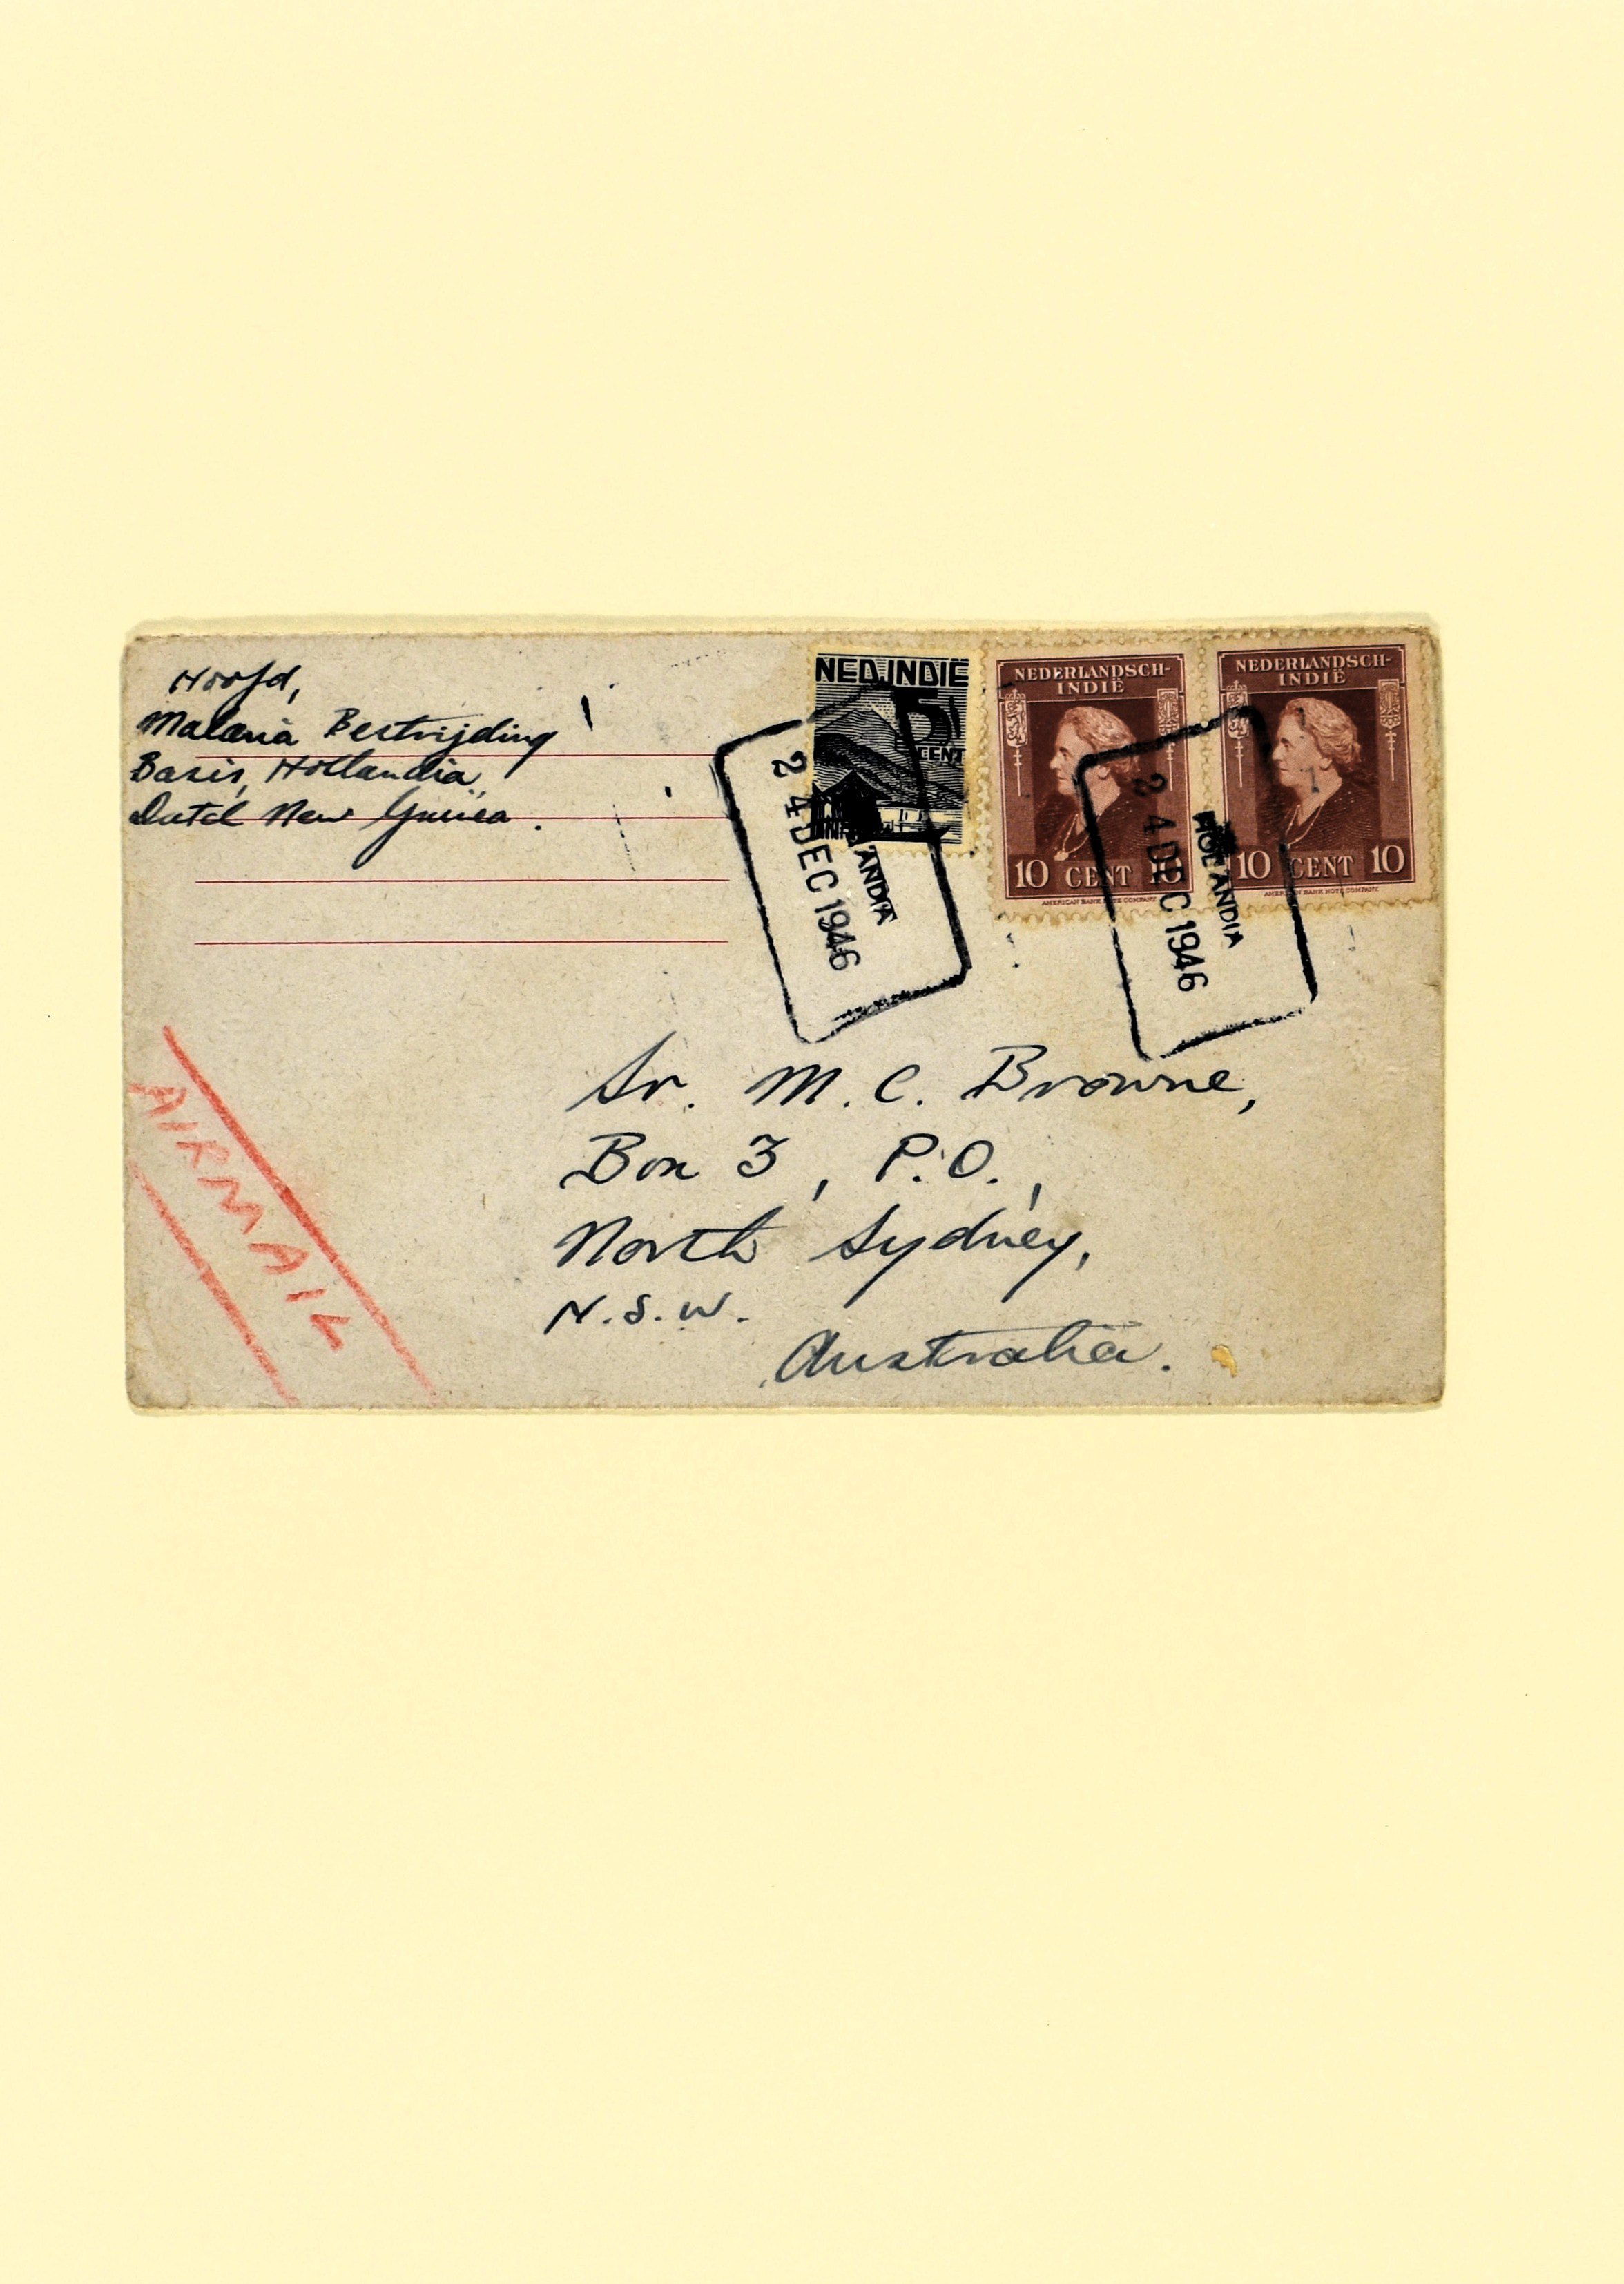 Hoofd,
Malaria Bestrijding
Basis, Hollandia
Dutch New Guinea.
NED.INDIË
5
CENT
NEDERLANDSCH-
INDIË
10 CENT 10
AMERICAN BANK NOTE COMPANY
NEDERLANDSCH-
INDIË
10 CENT 10
AMERICAN BANK NOTE COMPANY
24 DEC 1946
ANDIA
24 DEC 1946
HOLLANDIA
AIRMAIL
Sr. M. C. Browne,
Box 3, P.O.,
North Sydney,
N.S.W.
Australia.